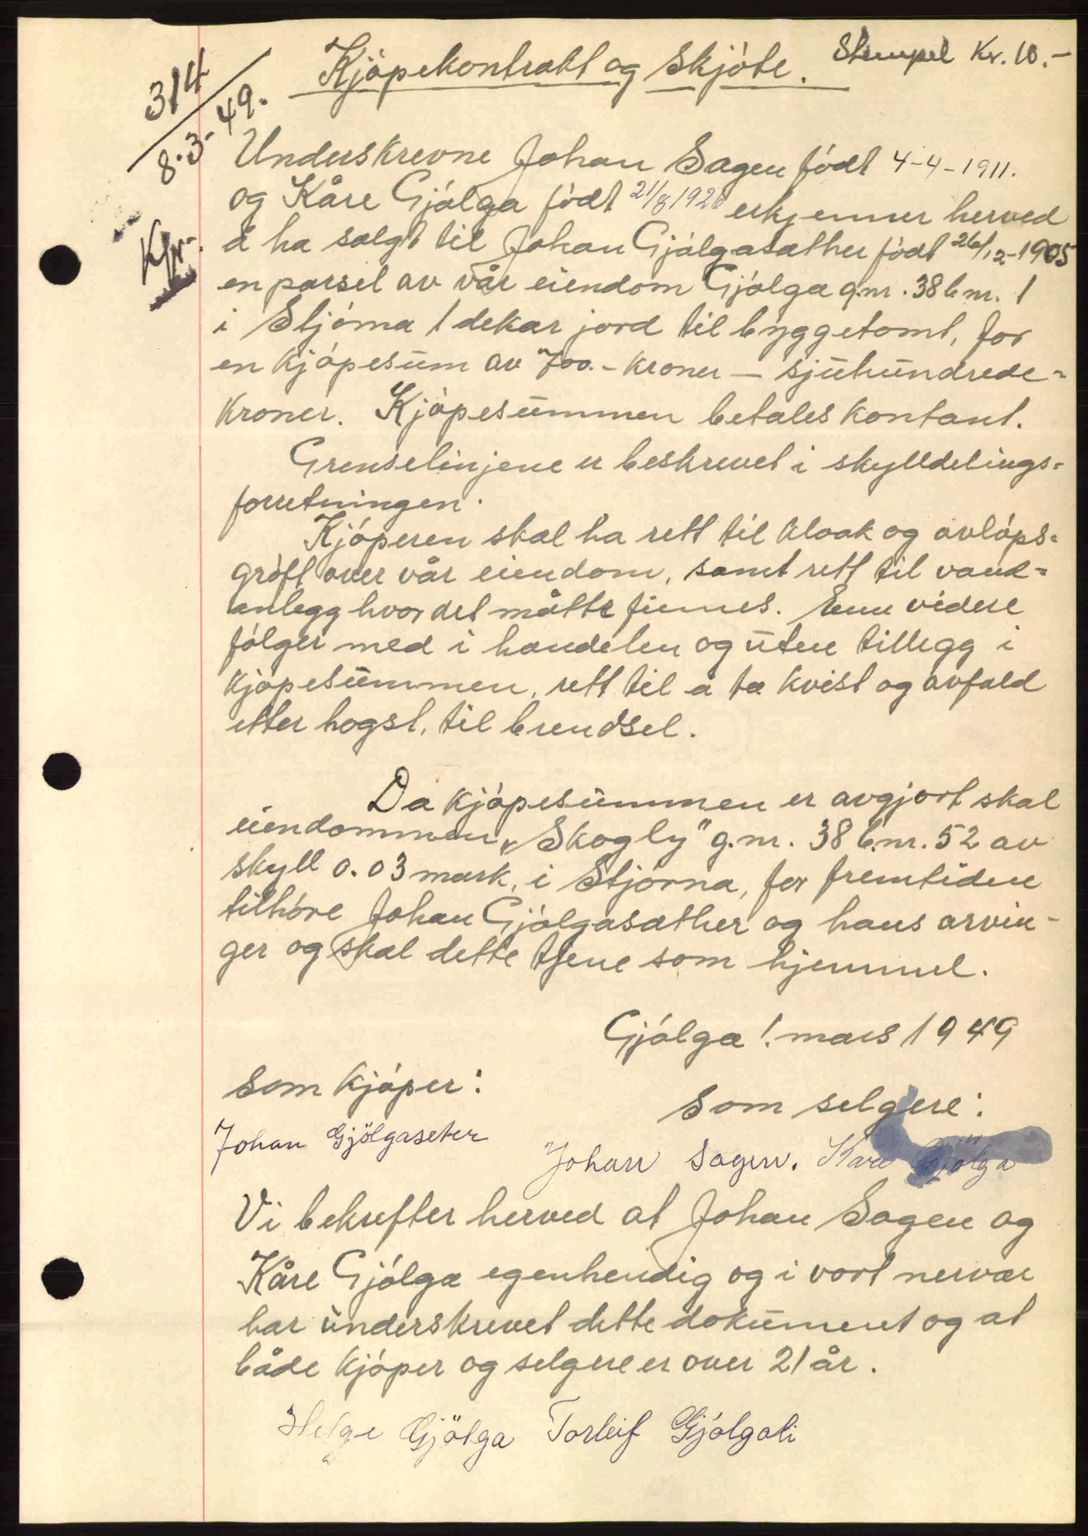 Kjópekontrakt og Skjóte.
Stempel Kr. 10.-
314
8.3-49.
Underskrevne Johan Sagen fódt 4-4-1911.
og Kåre Gjólga fódt 21/8 1926 erkjenner herved
å ha solgt til Johan Gjólgasæther fódt 26/12-1905
en parsel av vår eiendom Gjólga g.nr. 38 b.nr. 1
i Stjórna 1 dekar jord til byggetomt, for
en kjópesum av 700.- kroner — sjuhundrede-
kroner. Kjópesummen betales kontant.
Grenselinjene er beskrevet i skylldelings-
forretningen.
Kjóperen skal ha rett til kloak og avlóps-
gróft over vår eiendom, samt rett til vand-
anlegg hvor det måtte finnes. Enn videre
fólger med i handelen og uten tillegg i
kjópesummen, rett til å ta kvist og avfald
etter hogst, til brendsel.
Da kjópesummen er avgjort skal
eiendommen "Skogly" g.nr. 38 b.nr. 52 av
skyll 0.03 mark, i Stjorna, for fremtiden
tilhóre Johan Gjólgasæther og hans arvin-
ger og skal dette tjene som hjemmel.
Gjólga 1. mars 1949
Som kjóper:
Som selgere:
Johan Gjölgaseter
Johan Sagen. Kåre Gjölga
Vi bekrefter herved at Johan Sagen og
Kåre Gjólga egenhendig og i vort nervær
har underskrevet dette dokument og at
både kjóper og selgere er over 21 år.
Helge Gjölga Torleif Gjólgali